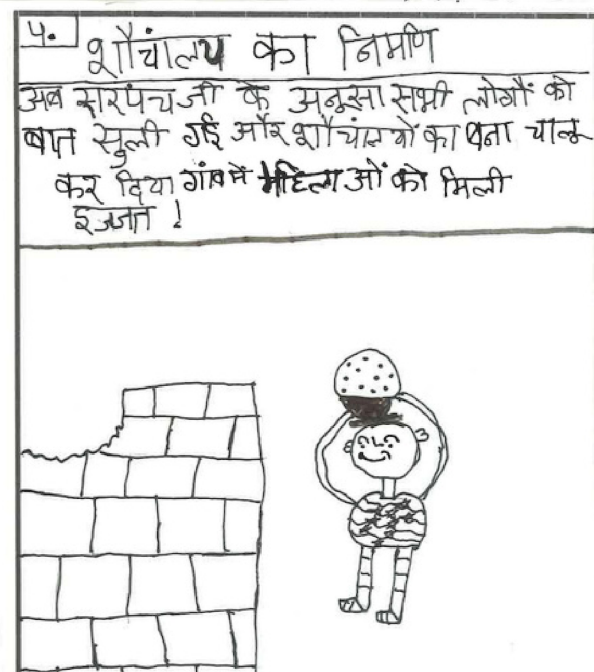 ४.
शौचांलय का निमणि
अब सरपंचजी के अनूसा सभी लोगों को
बात सुली गई और शौचांलयों का बना चालू
कर दिया गांवमें महिलाओं को मिली
इज्जत !